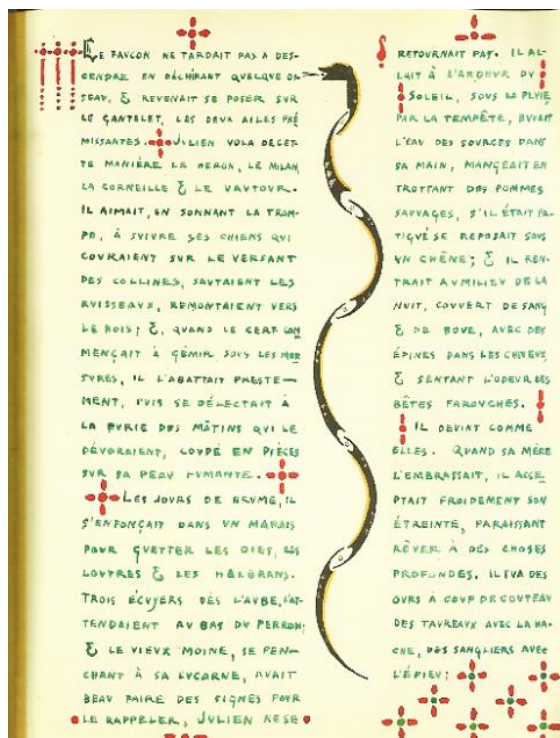 LE FAVCON NE TARDAIT PAS A DES-
CENDRE EN DÉCHIRANT QUELQUE OI-
SEAV, & REVENAIT SE POSER SUR
LE GANTELET, LES DEUX AILES FRÉ
MISSANTES. JULIEN VOLA DECET-
TE MANIÈRE LE HERON, LE MILAN,
LA CORNEILLE & LE VAVTOUR.
IL AIMAIT, EN SONNANT LA TROM-
PE, À SUIVRE SES CHIENS QUI
COURAIENT SUR LE VERSANT
DES COLLINES, SAUTAIENT LES
RVISSEAVX, REMONTAIENT VERS
LE BOIS; &, QUAND LE CERF COM
MENÇAIT À GÉMIR SOUS LES MOR
SURES, IL L'ABATTAIT PRESTE-
MENT, PUIS SE DÉLECTAIT À
LA FURIE DES MÂTINS QUI LE
DÉVORAIENT, COUPÉ EN PIÈCES
SUR SA PEAU FUMANTE.
LES JOURS DE BRUME, IL
S'ENFONÇAIT DANS VN MARAIS
POUR GVETTER LES OIES, LES
LOUTRES & LES HALBRANS.
TROIS ÉCUYERS DÈS L'AUBE, L'AT-
TENDAIENT AV BAS DV PERRON;
& LE VIEUX MOINE, SE PEN-
CHANT À SA LUCARNE, AVAIT
BEAU FAIRE DES SIGNES POUR
LE RAPPELER, JULIEN NESE
RETOURNAIT PAS. IL AL-
LAIT À L'ARDEUR DU
SOLEIL, SOUS LA PLUIE
PAR LA TEMPÊTE, BUVAIT
L'EAU DES SOURCES DANS
SA MAIN, MANGEAIT EN
TROTTANT DES POMMES
SAUVAGES, S'IL ÉTAIT FA-
TIGUÉ SE REPOSAIT SOUS
VN CHÊNE; & IL REN-
TRAIT AVMILIEV DE LA
NUIT, COUVERT DE SANG
& DE BOUE, AVEC DES
ÉPINES DANS LES CHEVEUX
& SENTANT L'ODEUR DES
BÊTES FAROUCHES.
IL DEVINT COMME
ELLES. QUAND SA MÈRE
L'EMBRASSAIT, IL ACCE
PTAIT FROIDEMENT SON
ÉTREINTE, PARAISSANT
RÊVER À DES CHOSES
PROFONDES. IL TUA DES
OURS À COUP DE COUTEAU
DES TAUREAUX AVEC LA HA-
CHE, DES SANGLIERS AVEC
L'ÉPIEU;